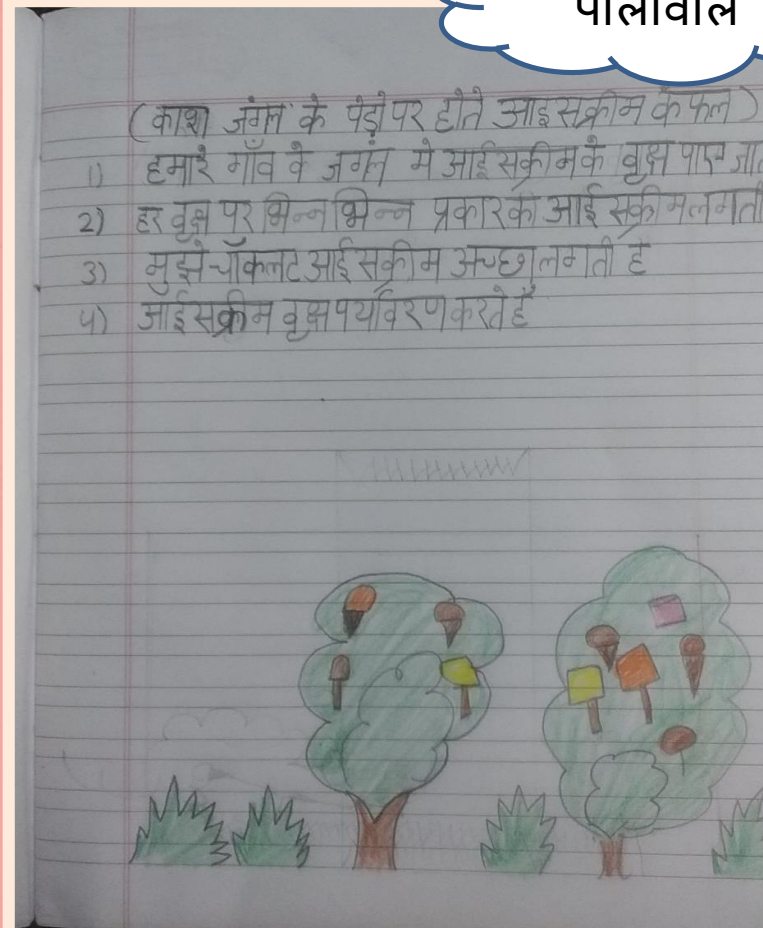 पालीवाल
(काश जंगल के पेड़ो पर होते आइसक्रीम के फल)
1) हमारे गाँव के जगंल मे आईसक्रीम के वृक्ष पाए जा
2) हर वृक्ष पर भिन्न भिन्न प्रकार की आई सक्रीम लगती
3) मुझे चॉकलट आईसक्रीम अच्छी लगती है
4) आईसक्रीम वृक्ष पर्यावरण करते है